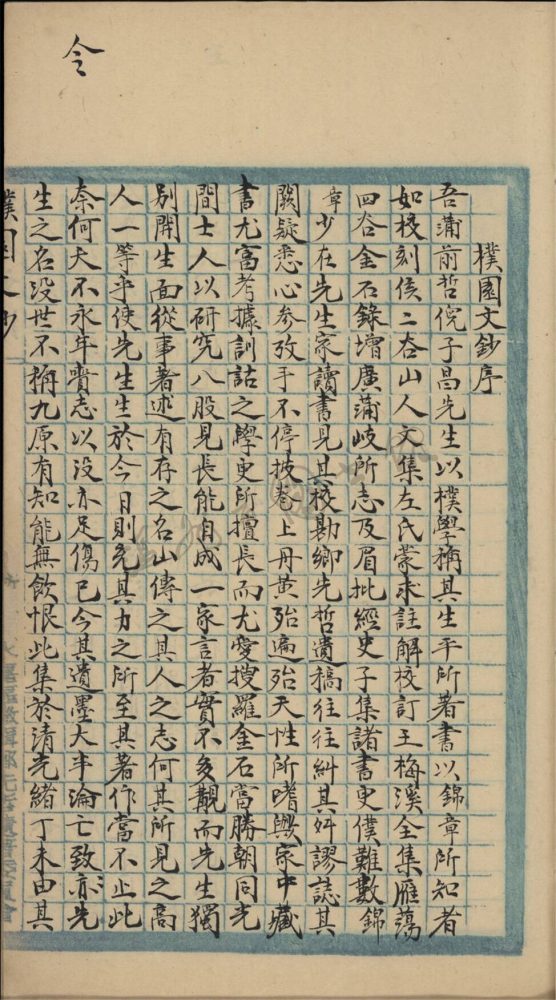 令
樸園文鈔序
吾蒲前哲倪子昌先生以樸學稱其生平所著書以錦章所知者
如校刻侯二谷山人文集左氏蒙求註解校訂王梅溪全集雁蕩
四谷金石錄增廣蒲岐所志及眉批經史子集諸書更僕難數錦
章少在先生家讀書見其校勘鄉先哲遺稿往往糾其舛謬誌其
闕疑悉心參攷手不停披卷上丹黄殆遍殆天性所嗜歟家中藏
書尤富考據訓詁之學更所擅長而尤愛搜羅金石當勝朝同光
間士人以研究八股見長能自成一家言者實不多覯而先生獨
别開生面從事著述有存之名山傳之其人之志何其所見之高
人一等乎使先生生於今日則充其力之所至其著作當不止此
奈何天不永年賫志以没亦足傷已今其遺墨大半淪亡致亦先
生之名没世不稱九原有知能無飲恨此集於清光緒丁未由其